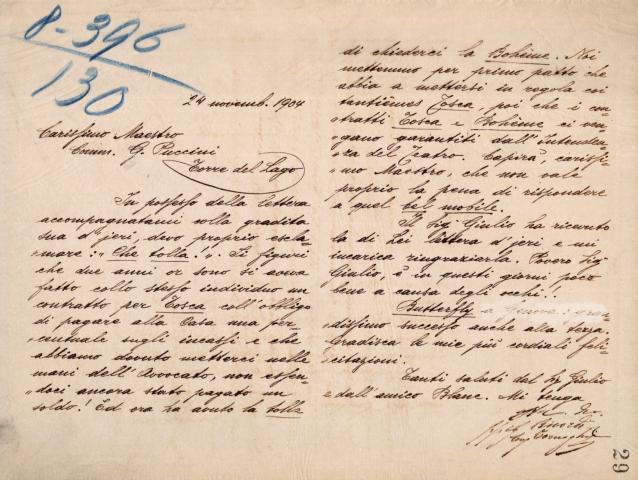 8-396
130
24 novemb. 1904
Carissimo Maestro
Comm. G. Puccini
Torre del Lago
In possesso della lettera
accompagnatami colla gradita
sua d'jeri, devo proprio escla-
mare: "Che tolla!". Si figuri
che due anni or sono si aveva
fatto collo stesso individuo un
contratto per Tosca coll'obbligo
di pagare alla Casa una per-
centuale sugli incassi e che
abbiamo dovuto metterci nelle
mani dell'Avvocato, non essen-
doci ancora stato pagato un
soldo! Ed ora ha avuto la tolla
di chiederci la Bohème. Noi
mettemmo per primo patto che
abbia a mettersi in regola coi
tantièmes Tosca, poi che i con-
tratti Tosca e Bohème ci ven-
gano garantiti dall'Intenden-
za del Teatro. Capirà, carissi-
mo Maestro, che non vale
proprio la pena di rispondere
a quel bel mobile.
Il Sig. Giulio ha ricevuto
la di Lei lettera d'jeri e mi
incarica ringraziarla. Povero Sig.
Giulio, è in questi giorni poco
bene a causa degli occhi!.
Butterfly a Genova: gran-
dissimo successo anche alla terza.
Gradisca le mie più cordiali feli-
citazioni.
Tanti saluti dal Sig. Giulio
e dall'amico Blanc. Mi tenga
29